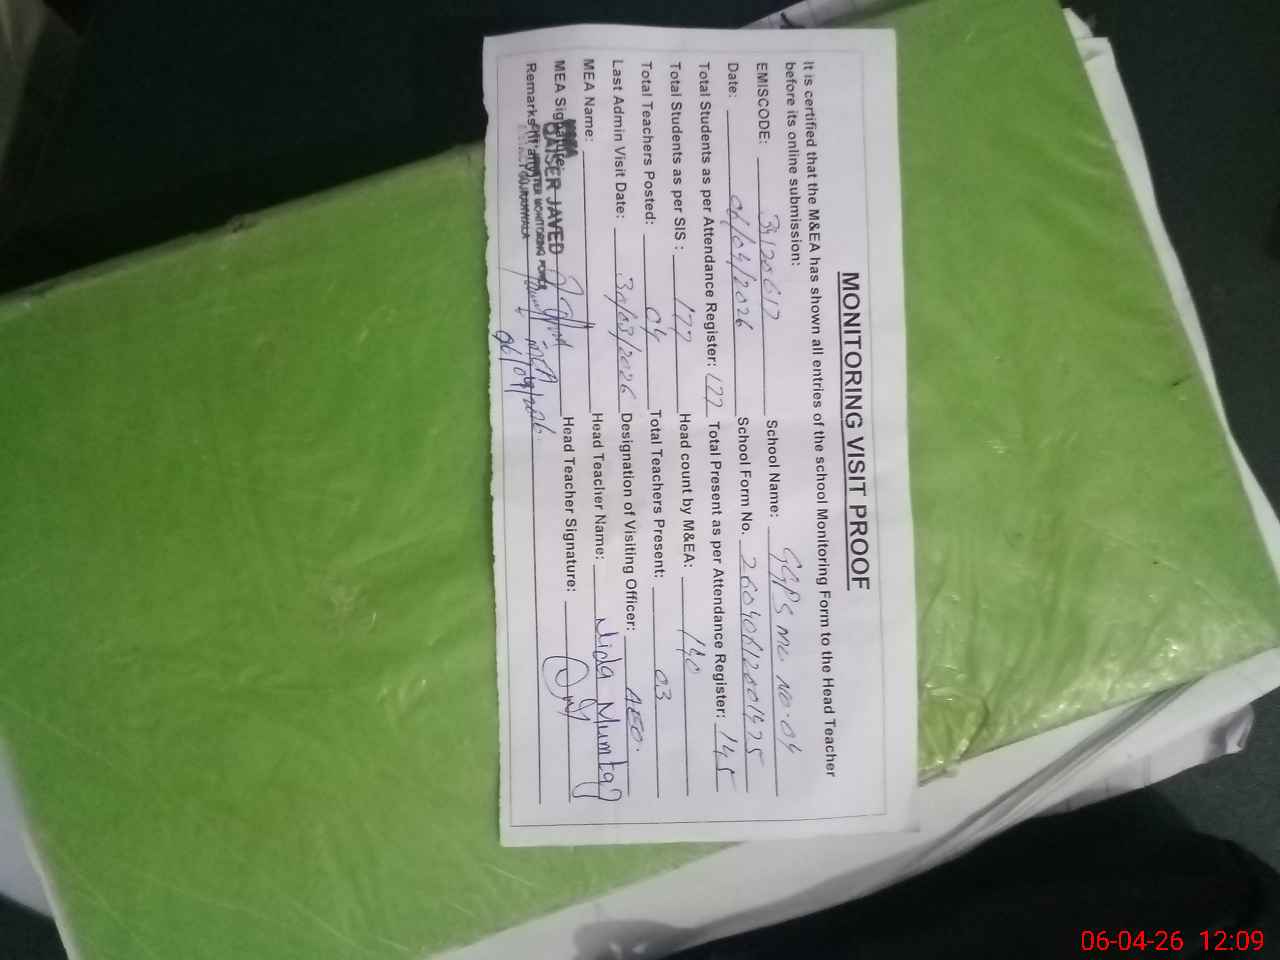 MONITORING VISIT PROOF
It is certified that the M&EA has shown all entries of the school Monitoring Form to the Head Teacher
before its online submission:
EMISCODE: 34120617 School Name: GGPS MC NO.04
Date: 06/04/2026 School Form No. 26040612001475
Total Students as per Attendance Register: 177 Total Present as per Attendance Register: 145
Total Students as per SIS : 177 Head count by M&EA: 140
Total Teachers Posted: 04 Total Teachers Present: 03
Last Admin Visit Date: 30/03/2026 Designation of Visiting Officer: AEO.
MEA Name: Head Teacher Name: Nida Mumtaz
MEA Signature: Head Teacher Signature:
Remarks (If any)
QAISER JAVED
MONITORING FORCE
GUJRANWALA
06/04/2026
06-04-26 12:09